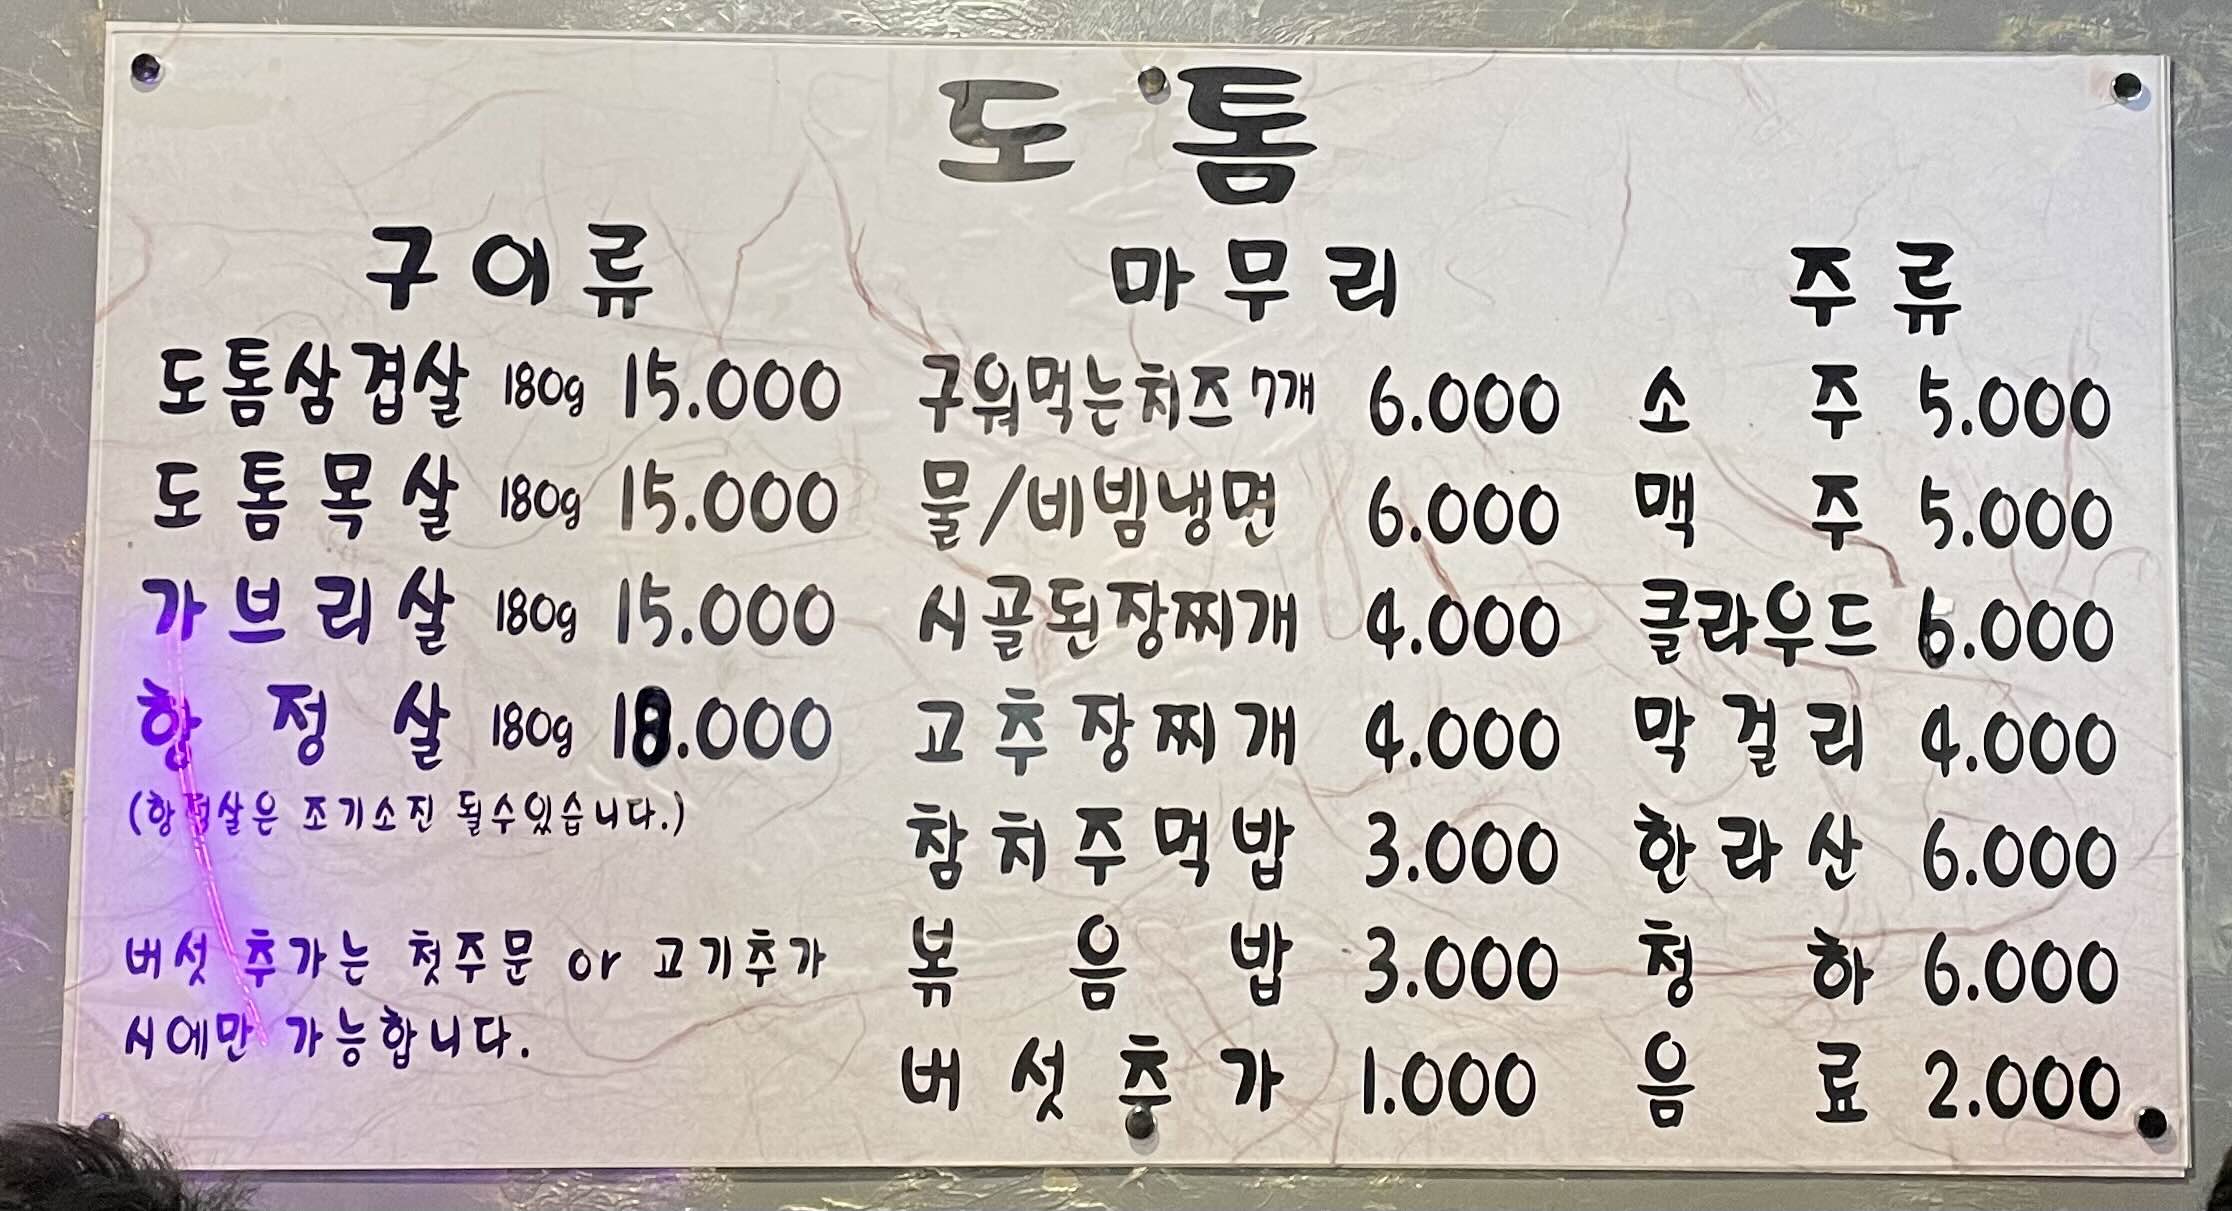 도톰
구이류
도톰삼겹살 180g 15.000
도톰목살 180g 15.000
가브리살 180g 15.000
항정살 180g 18.000
(항정살은 조기소진 될수있습니다.)
버섯 추가는 첫주문 or 고기추가
시에만 가능합니다.
마무리
구워먹는치즈 7개 6.000
물/비빔냉면 6.000
시골된장찌개 4.000
고추장찌개 4.000
참치주먹밥 3.000
볶음밥 3.000
버섯추가 1.000
주류
소주 5.000
맥주 5.000
클라우드 6.000
막걸리 4.000
한라산 6.000
청하 6.000
음료 2.000